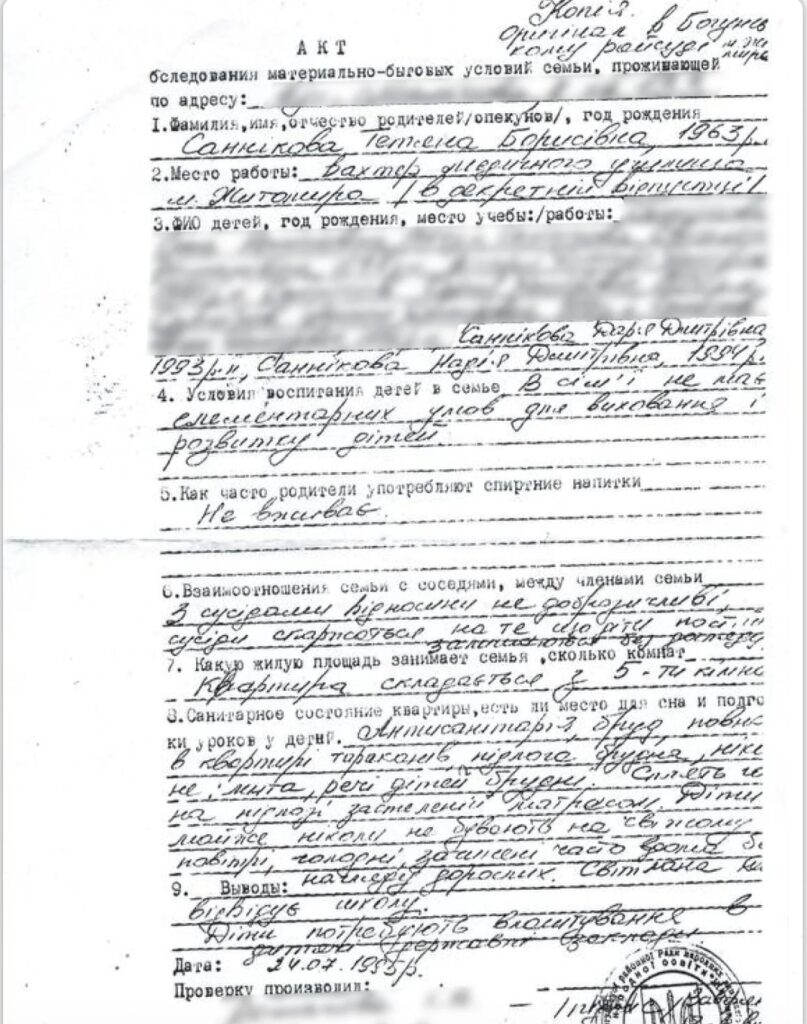 Копія.
оригінал в Богунсь
кому райсуді м. Жи
томира
АКТ
бследования материально-бытовых условий семьи, проживающей
по адресу:
1.Фамилия,имя,отчество родителей/опекунов/, год рождения
Саннікова Тетяна Борисівна, 1963р.н.
2.Место работы: вахтер медичного училища
м. Житомира /в декретній відпустці/
3.ФИО детей, год рождения, место учебы:/работы:
Саннікова Дарія Дмитрівна
1993р.н, Саннікова Надія Дмитрівна, 1994р.
4. Условия воспитания детей в семье В сім'ї не має
елементарних умов для виховання і
розвитку дітей.
5.Как часто родители употребляют спиртние напитки
Не вживає.
6.Взаимоотношения семьи с соседями, между членами семьи
З сусідами відносини не доброзичливі,
сусіди скаржаться на те що діти
залишаються без догляду
7. Какую жилую площадь занимает семья ,сколько комнат
Квартира складається з 5-ти кімна
8.Санитарное состояние квартиры,есть ли место для сна и подго
ки уроков у детй. Антисанітарія, бруд, повно
в квартирі тараканів підлога брудна, ніко
не мита, речі дітей брудні. Сплять
на підлозі застеленій матрасом. Діти
майже ніколи не бувають на свіжому
повітрі, голодні, часто вдома бе
нагляду дорослих. Світлана не
9. Выводы:
відвідує школу.
Діти потребують влаштування в
дитячі державні заклади
Дата: 24.07.1995р.
Проверку производили: